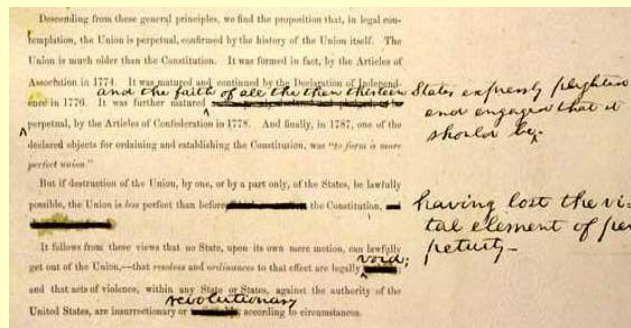 Descending from these general principles, we find the proposition that, in legal con-
templation, the Union is perpetual, confirmed by the history of the Union itself. The
Union is much older than the Constitution. It was formed in fact, by the Articles of
Association in 1774. It was matured and continued by the Declaration of Independ-
and the faith of all the then thirteen States expressly plighted
and engaged that it
should be
ence in 1776. It was further matured
perpetual, by the Articles of Confederation in 1778. And finally, in 1787, one of the
declared objects for ordaining and establishing the Constitution, was "to form a more
perfect union."
But if destruction of the Union, by one, or by a part only, of the States, be lawfully
possible, the Union is less perfect than before the Constitution,
having lost the vi-
tal element of per
petuity-
It follows from these views that no State, upon its own mere motion, can lawfully
void;
get out of the Union,—that resolves and ordinances to that effect are legally
and that acts of violence, within any State or States, against the authority of the
revolutionary
United States, are insurrectionary or according to circumstances.